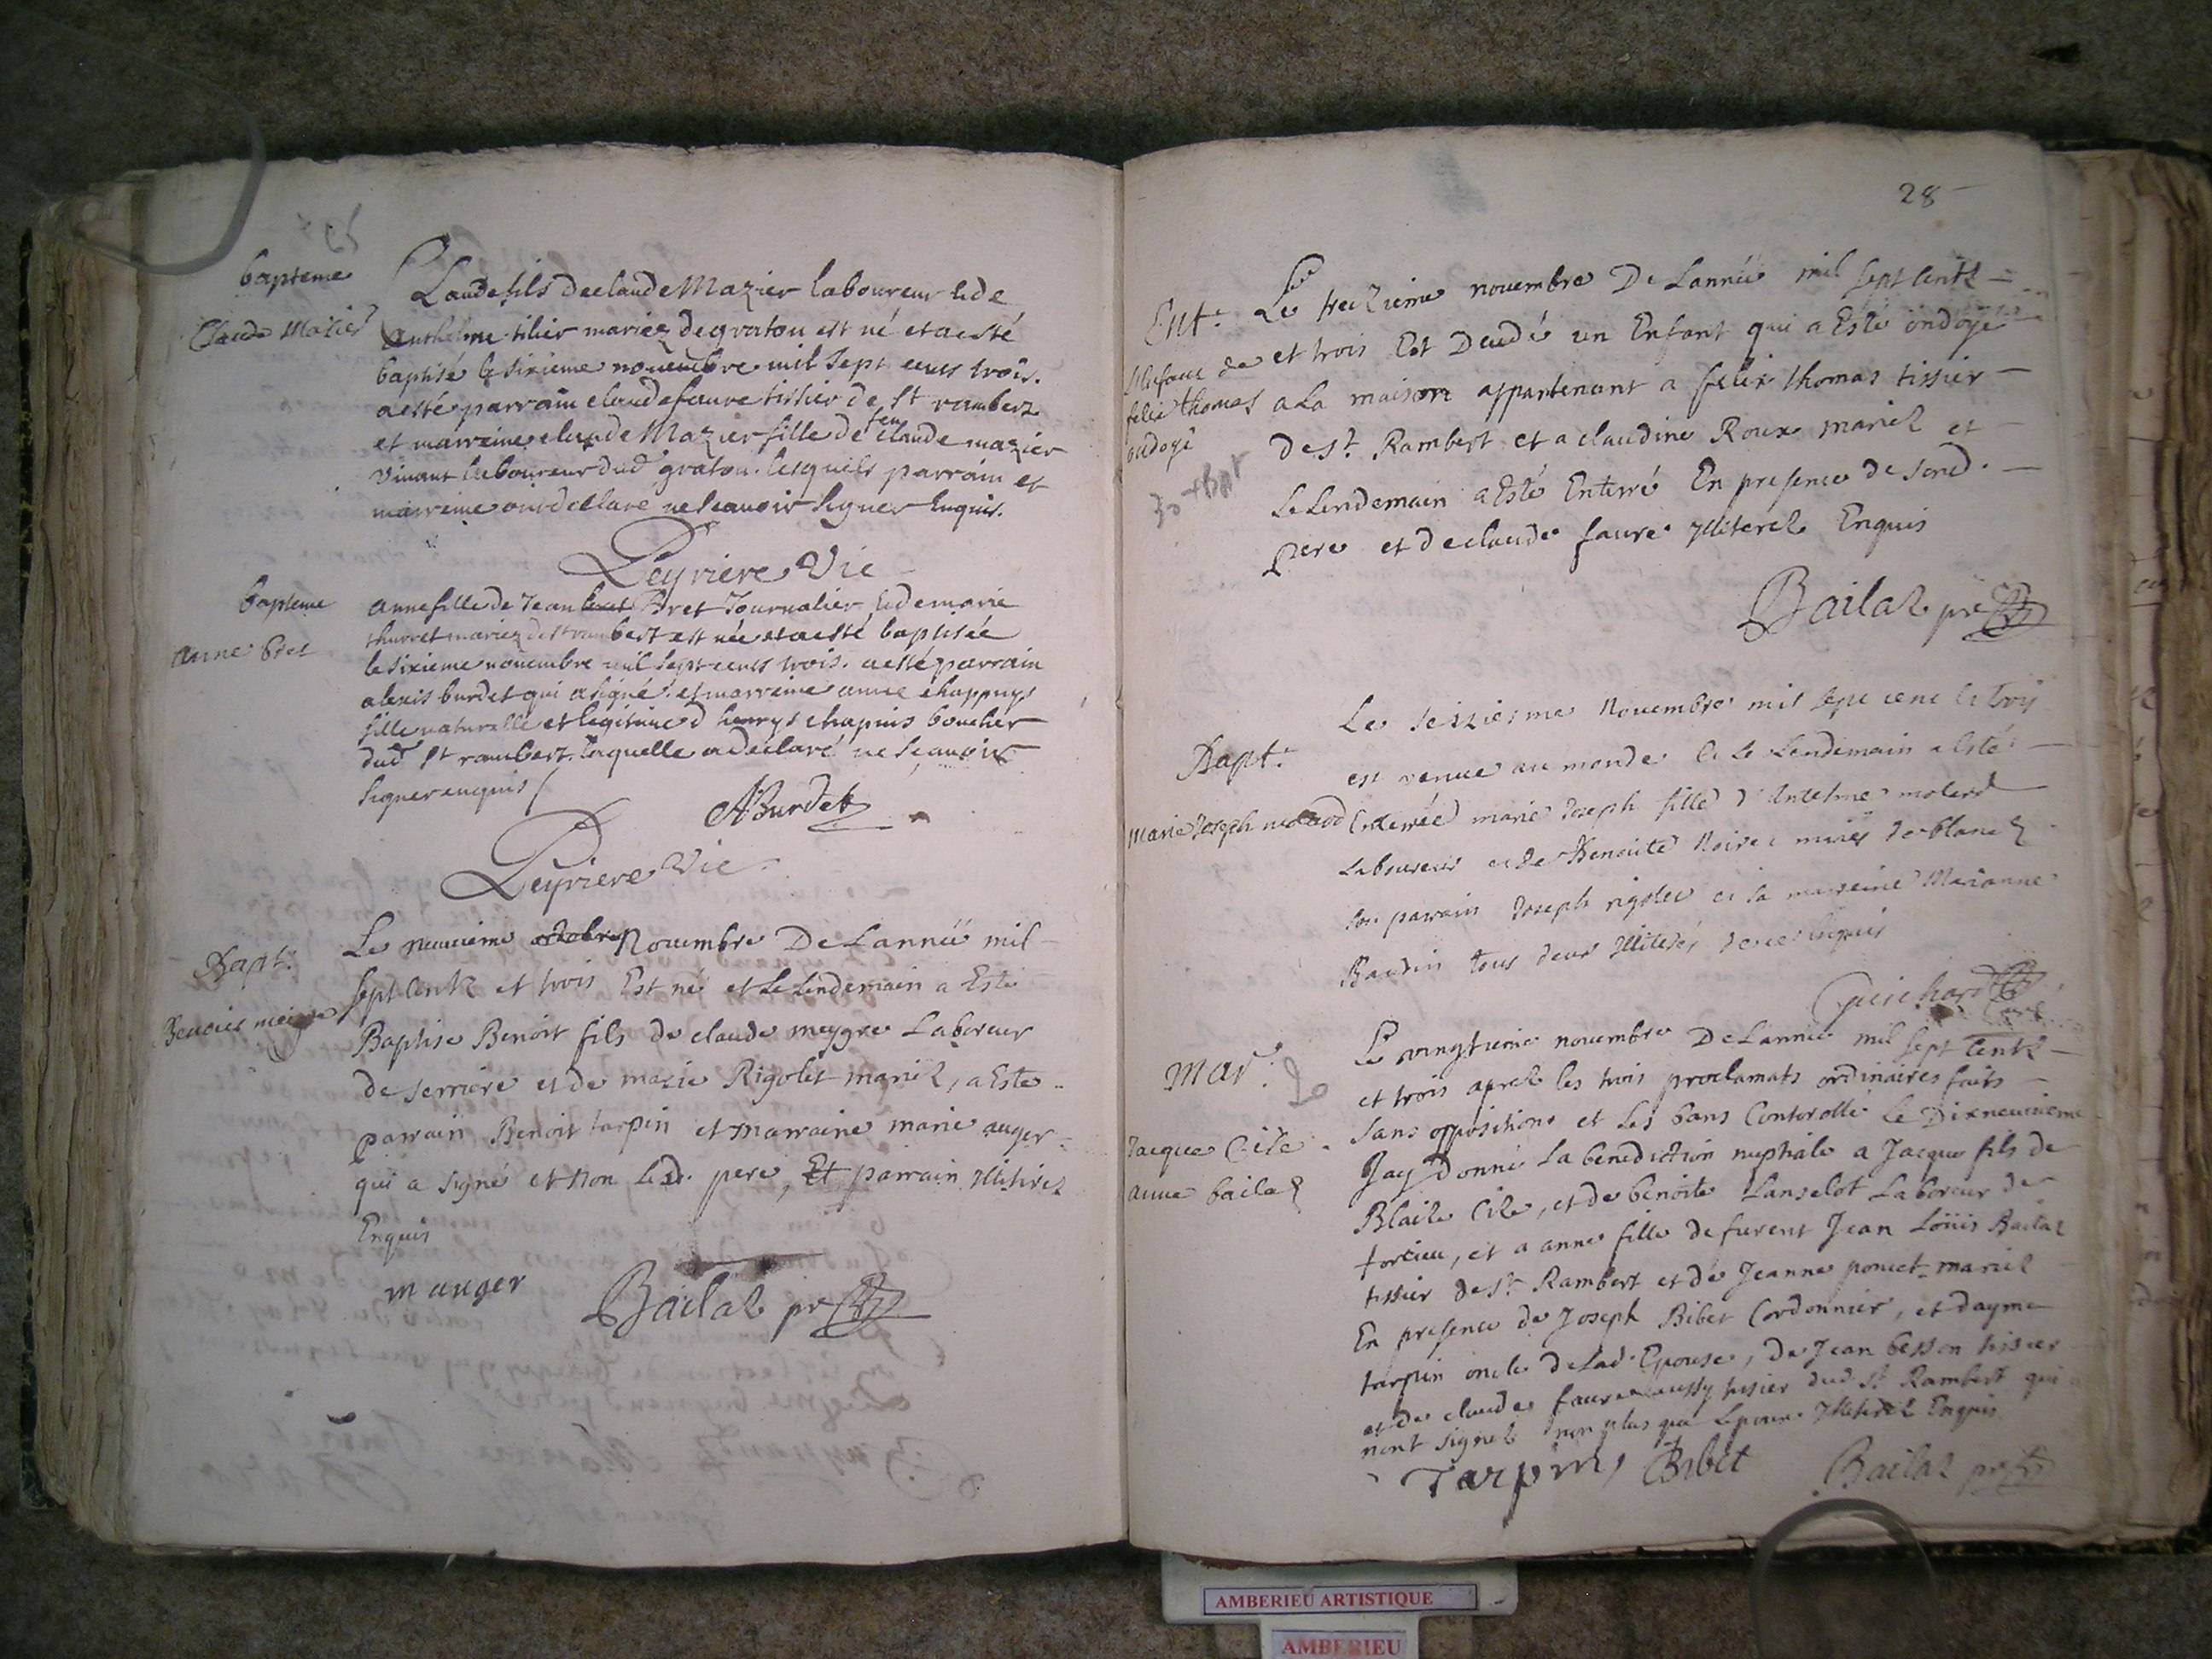 bapteme
Claude Mazier
Claude fils de claude Mazier laboureur et de
anthelme tilier mariez de graton est né et a esté
baptisé le sixieme novembre mil sept cents trois.
a esté parrain claude faure tissier de St rambert
et marreine claude Mazier fille de feu claude mazier
vivant laboureur dud graton. lesquels parrain et
marreine ont declaré ne scavoir signer enquis.
Peyriere Vic
bapteme
anne bret
anne fille de Jean bret Bret Journalier et de marie
thurret mariez de St rambert est née et a esté baptisée
le sixieme novembre mil sept cents trois. a esté parrain
alexis burdet qui a signé. et marreine anne chappuys
fille naturelle et legitime d henrys chapuis boucher
dud St rambert. laquelle a declaré ne scavoir
signer enquis
ABurdet
Peyriere Vic
Bapt.
Benoict meigre
Le neuvieme octobre Novembre De Lannée mil
sept Centz et trois Est né et Le Lendemain a Esté
Baptise Benoit fils de claude meygre Laboreur
de serriere et de marie Rigolet mariéz, a Este
parrain Benoit tarpin et marraine marie auger
qui a signé et non Led. pere, Et parrain Illitirez
Enquis
m auger
Bailaz pr
28
Ent.
felix thomas
ondoyé
Le treizieme novembre De Lannée mil sept Centz
et trois Est Decedé un Enfant qui a Esté ondoyé
a La maison appartenant a felix thomas tissier
de St. Rambert et a claudine Roux mariéz et
Le Lendemain a Esté Enterré En presence de sond.
pere et de claude faure Illiteréz Enquis
Bailaz pr
Bapt.
marie Joseph molard
Le seiziesme Novembre mil sept cent et trois
est venue au monde et le Lendemain a esté
marie Joseph fille d'Antelme molard
Laboureur et de Benoite Noiret mariés de blanaz
son parrain Joseph rigolet et sa marreine Marianne
Baudin tous deux Illiterés de ce enquis
Guichard
Mar.
Jacque Cite
anne bailaz
Le vingtieme novembre De Lannée mil sept Centz
et trois aprez les trois proclamats ordinaires faits
sans oppositions et les bans Controllé le Dixneuvieme
Jay Donné La benediction nuptiale a Jacque fils de
Blaise Cite, et de benoite Lanselot Laboreur de
torcieu, et a anne fille de furent Jean Loüis Bailaz
tissier de St Rambert et de Jeanne poncet mariéz
En presence de Joseph Bibet Cordonnier, et dayme
tarpin oncle de Lad. Epouse, de Jean besson tissier
et de claude faure aussy tissier dud. St Rambert qui
nont signéz non plus que Lepoux Illiteréz Enquis
Tarpin Bibet Bailaz pr
AMBERIEU ARTISTIQUE
AMBERIEU